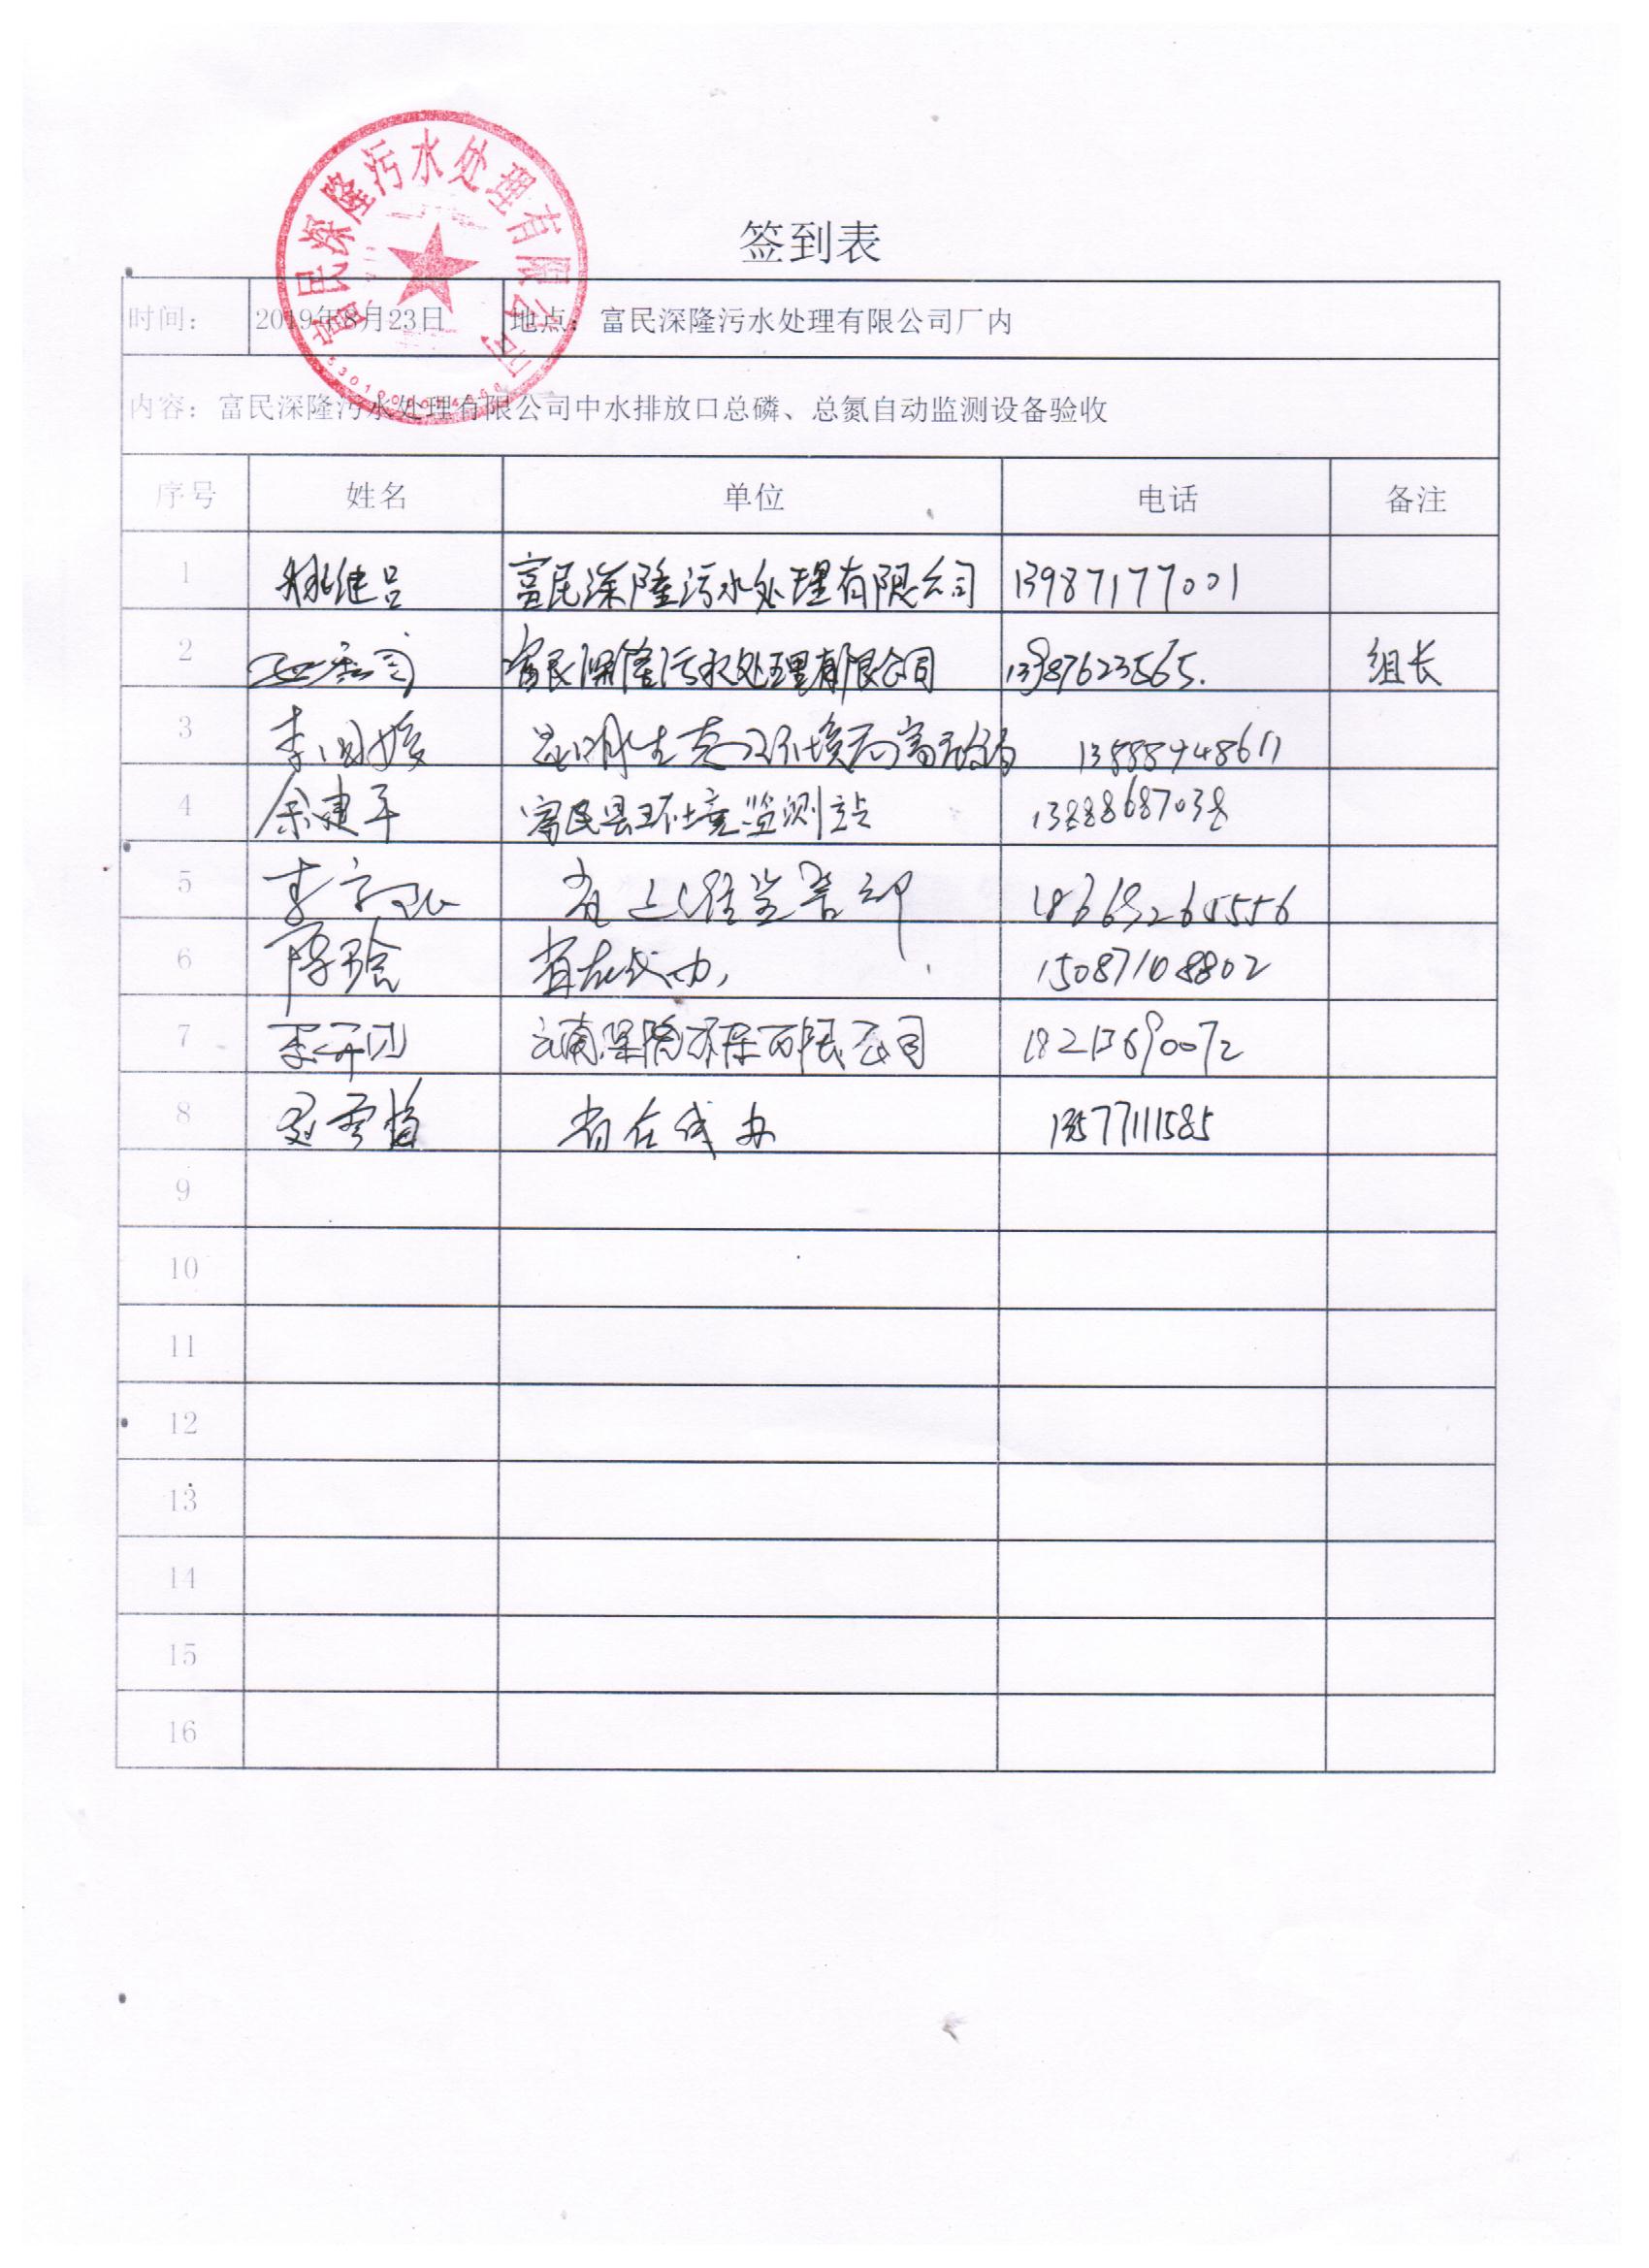 富民深隆污水处理有限公司
签到表
时间： 2019年8月23日 地点：富民深隆污水处理有限公司厂内
内容：富民深隆污水处理有限公司中水排放口总磷、总氮自动监测设备验收
序号 姓名 单位 电话 备注
1 富民深隆污水处理有限公司 13987177001
2 富民深隆污水处理有限公司 13987623565. 组长
3 李国媛 昆明市生态环境局富民分局 13888948611
4 余建平 富民县环境监测站 13888687038
5 18669265556
6 陈晗 省在线办, 15087108802
7 云南深隆环保有限公司 18213690072
8 省在线办 13577111585
9
10
11
12
13
14
15
16